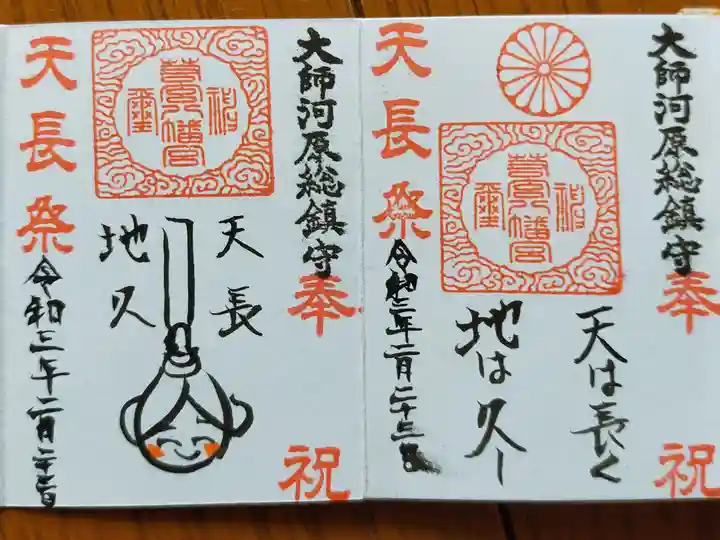 大師河原総鎮守
奉祝
天は長く
地は久し
令和三年二月二十三日
天長祭
大師河原総鎮守
奉祝
天長
地久
令和三年二月二十三日
天長祭